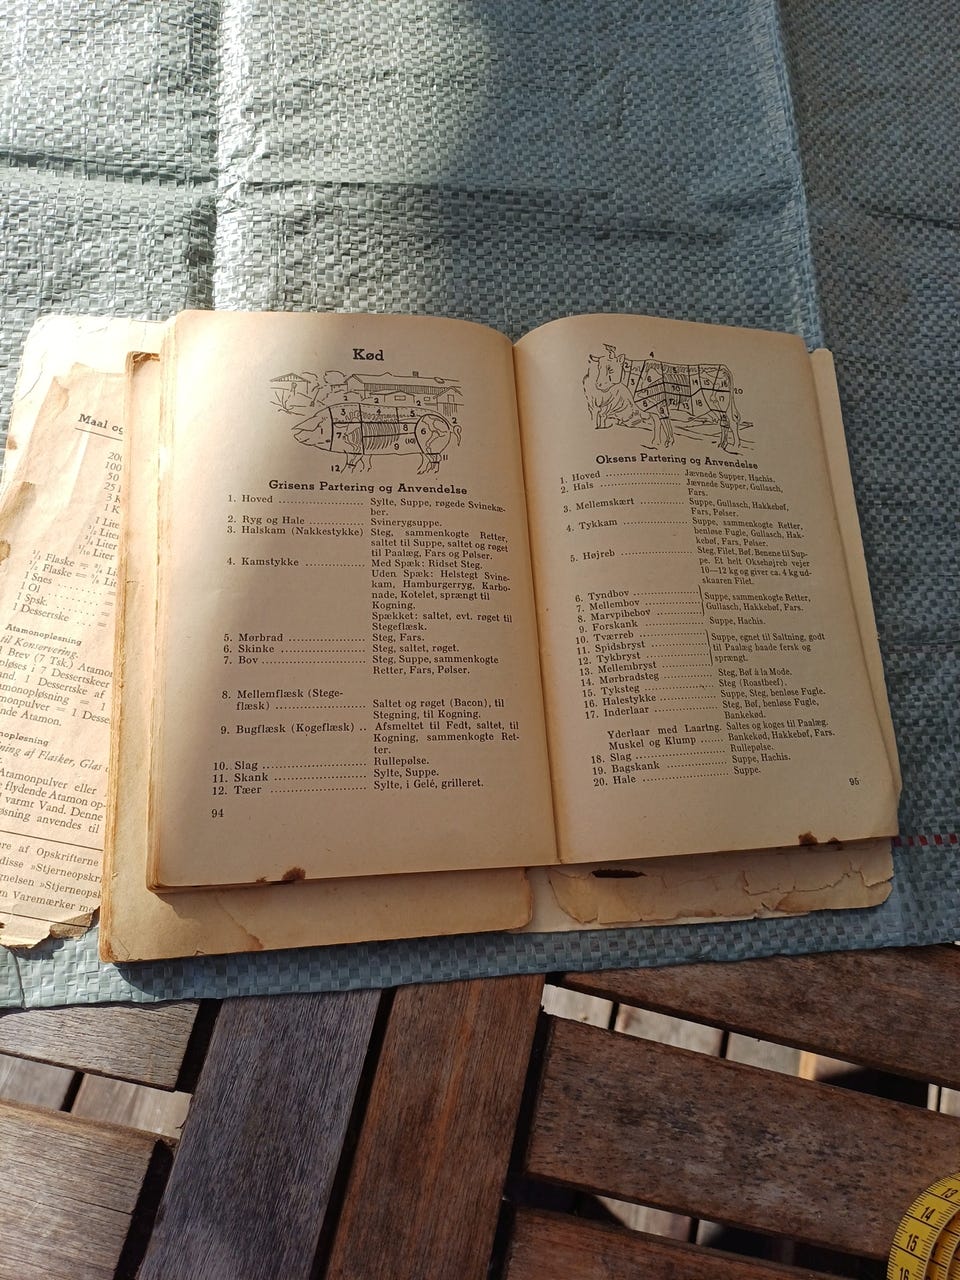 Maal og
200
100
50
25
3 K
1 K
1 Lite
1/2 Liter
1/4 Liter
1/10 Liter
1/1 Flaske =
1/2 Flaske =
1 Snes
1 Ol
1 Spsk.
1 Dessertske
Atamonopløsning
til Konservering.
1 Brev (7 Tsk.) Atamon
pløses i 7 Dessertskeer
and. 1 Dessertske af
amonopløsning = 1
monpulver = 1 Desse
nde Atamon.
nopløsning
ning af Flasker, Glas
Atamonpulver eller
flydende Atamon op-
varmt Vand. Denne
øsning anvendes til
re af Opskrifterne
disse »Stjerneopskr
gnelsen »Stjerneopsl
m Varemærker me
Kød
Grisens Partering og Anvendelse
1. Hoved .................. Sylte, Suppe, røgede Svinekæ-
ber.
2. Ryg og Hale ............ Svinerygsuppe.
3. Halskam (Nakkestykke) Steg, sammenkogte Retter,
saltet til Suppe, saltet og røget
til Paalæg, Fars og Pølser.
4. Kamstykke .............. Med Spæk: Ridset Steg.
Uden Spæk: Helstegt Svine-
kam, Hamburgerryg, Karbo-
nade, Kotelet, sprængt til
Kogning.
Spækket: saltet, evt. røget til
Stegeflæsk.
5. Mørbrad ................ Steg, Fars.
6. Skinke ................. Steg, saltet, røget.
7. Bov .................... Steg, Suppe, sammenkogte
Retter, Fars, Pølser.
8. Mellemflæsk (Stege-
flæsk) .................... Saltet og røget (Bacon), til
Stegning, til Kogning.
9. Bugflæsk (Kogeflæsk) .. Afsmeltet til Fedt, saltet, til
Kogning, sammenkogte Ret-
ter.
10. Slag .................. Rullepølse.
11. Skank ................. Sylte, Suppe.
12. Tæer .................. Sylte, i Gelé, grilleret.
94
Oksens Partering og Anvendelse
1. Hoved .................. Jævnede Supper, Hachis.
2. Hals ................... Jævnede Supper, Gullasch,
Fars.
3. Mellemskært ............ Suppe, Gullasch, Hakkebøf,
Fars, Pølser.
4. Tykkam ................. Suppe, sammenkogte Retter,
benløse Fugle, Gullasch, Hak-
kebøf, Fars, Pølser.
5. Højreb ................. Steg, Filet, Bøf. Benene til Sup-
pe. Et helt Oksehøjreb vejer
10—12 kg og giver ca. 4 kg ud-
skaaren Filet.
6. Tyndbov ................
7. Mellembov .............. Suppe, sammenkogte Retter,
8. Marvpibebov ............ Gullasch, Hakkebøf, Fars.
9. Forskank ............... Suppe, Hachis.
10. Tværreb ...............
11. Spidsbryst ............ Suppe, egnet til Saltning, godt
12. Tykbryst .............. til Paalæg baade fersk og
13. Mellembryst ........... sprængt.
14. Mørbradsteg ........... Steg, Bøf à la Mode.
15. Tyksteg ............... Steg (Roastbeef).
16. Halestykke ............ Suppe, Steg, benløse Fugle.
17. Inderlaar ............. Steg, Bøf, benløse Fugle,
Bankekød.
Yderlaar med Laartng. Saltes og koges til Paalæg.
Muskel og Klump ...... Bankekød, Hakkebøf, Fars.
18. Slag .................. Rullepølse.
19. Bagskank .............. Suppe, Hachis.
20. Hale .................. Suppe.
95
13
14
15
16